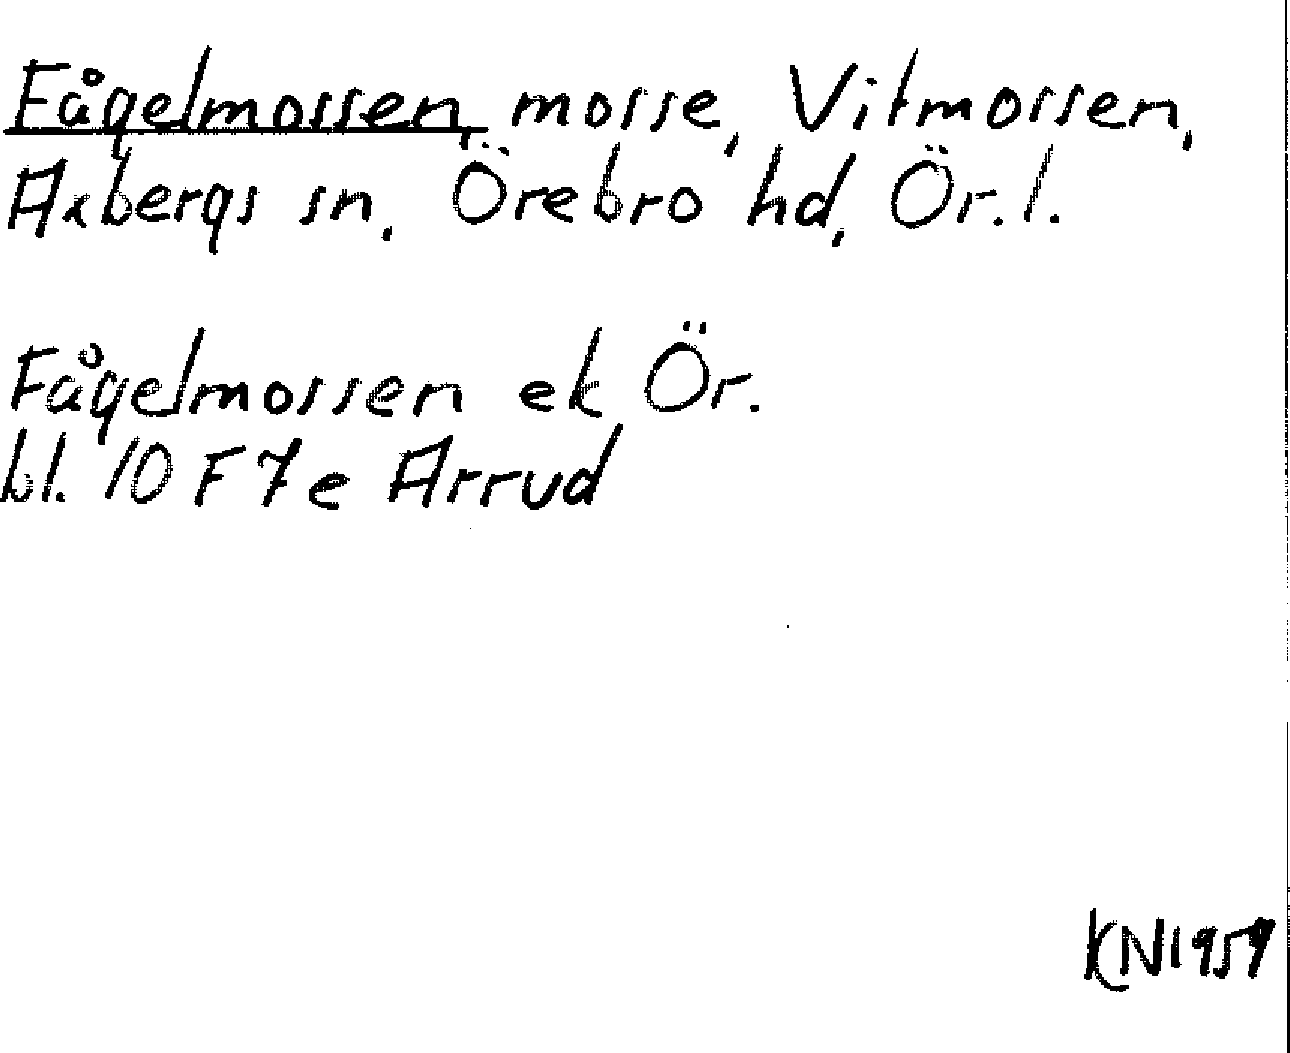 Fågelmossen, mosse, Vitmossen,
Axbergs sn, Örebro hd, Ör. l.
Fågelmossen ek Ör.
bl. 10 F 7e Arrud
KN1959